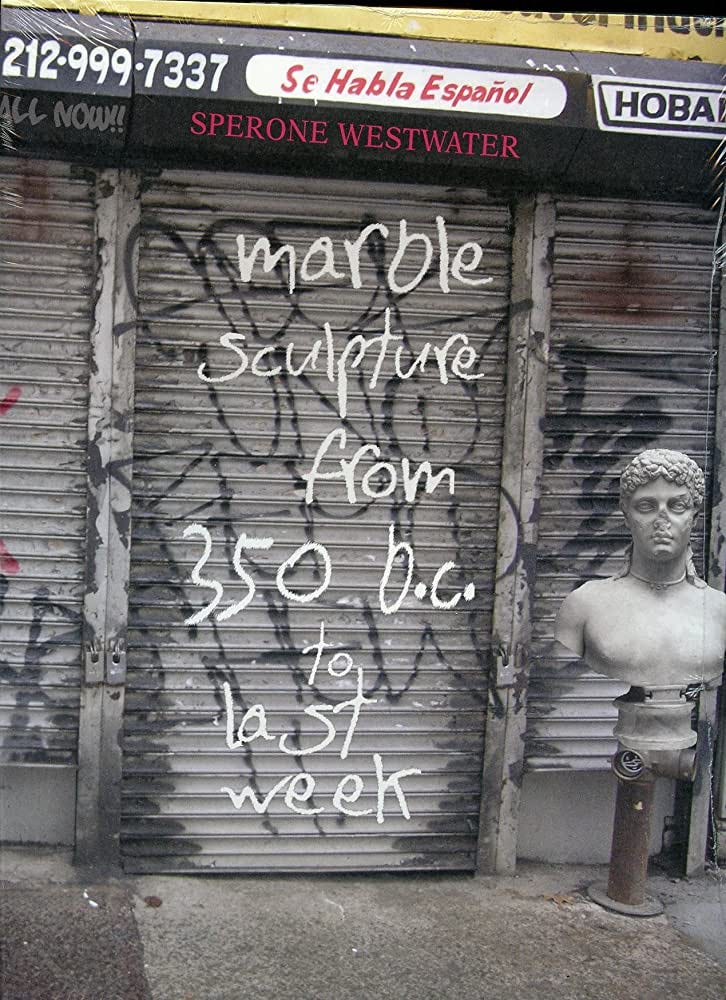 212-999-7337
Se Habla Español
HOBA
ALL NOW!!
SPERONE WESTWATER
marble
sculpture
from
350 b.c.
to
last
week